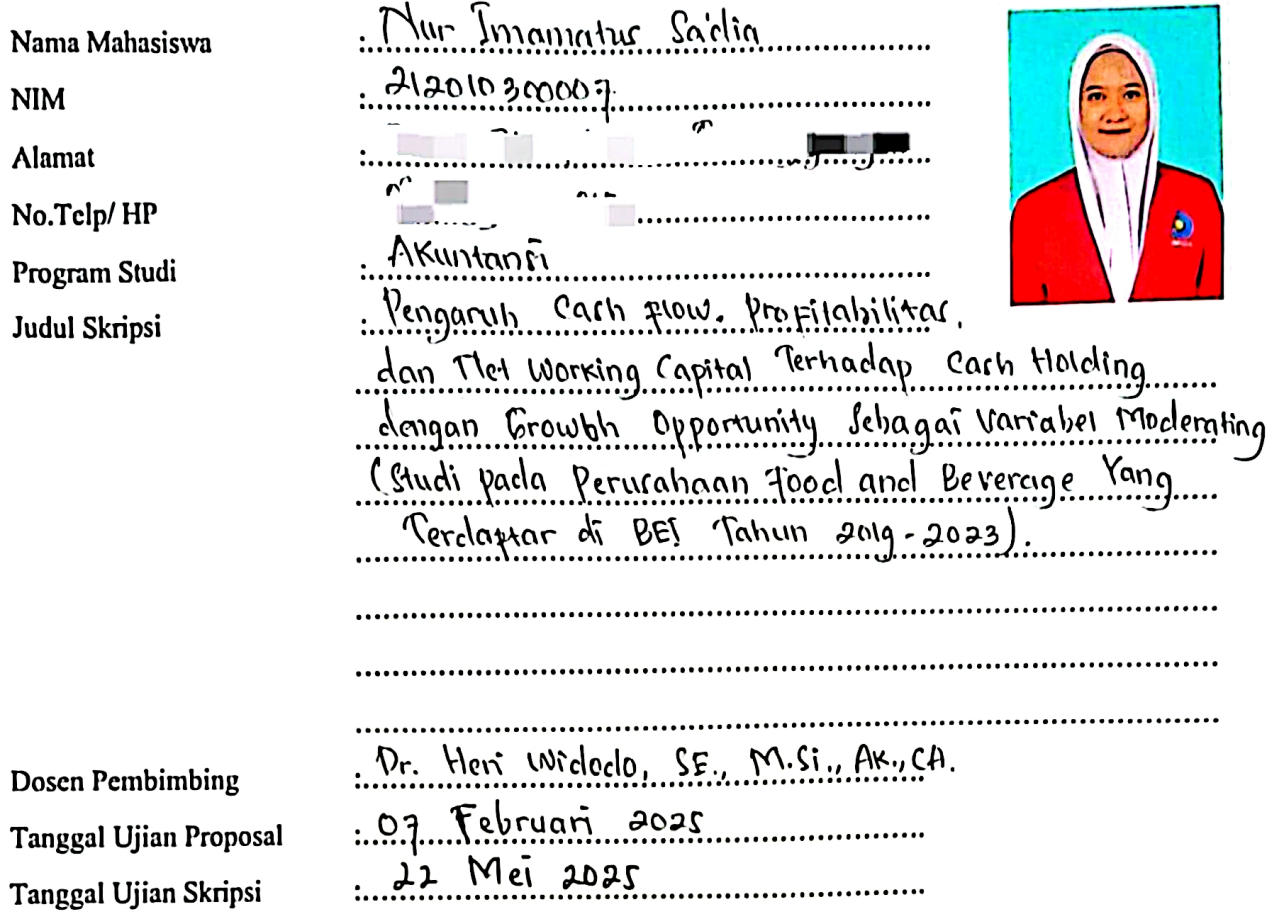 Nama Mahasiswa : Nur Imamatus Sa'dia
NIM : 212010300007
Alamat :
No.Telp/ HP
Program Studi : Akuntansi
Judul Skripsi : Pengaruh Cash flow, Profitabilitas,
dan Net Working Capital Terhadap Cash Holding
dengan Growth Opportunity Sebagai Variabel Moderating
(Studi pada Perusahaan Food and Beverage Yang
Terdaftar di BEI Tahun 2019-2023).
Dosen Pembimbing : Dr. Heri Widodo, SE., M.Si., Ak., CA.
Tanggal Ujian Proposal : 07 Februari 2025
Tanggal Ujian Skripsi : 22 Mei 2025